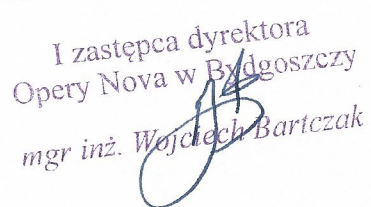 I zastępca dyrektora
Opery Nova w Bydgoszczy
mgr inż. Wojciech Bartczak